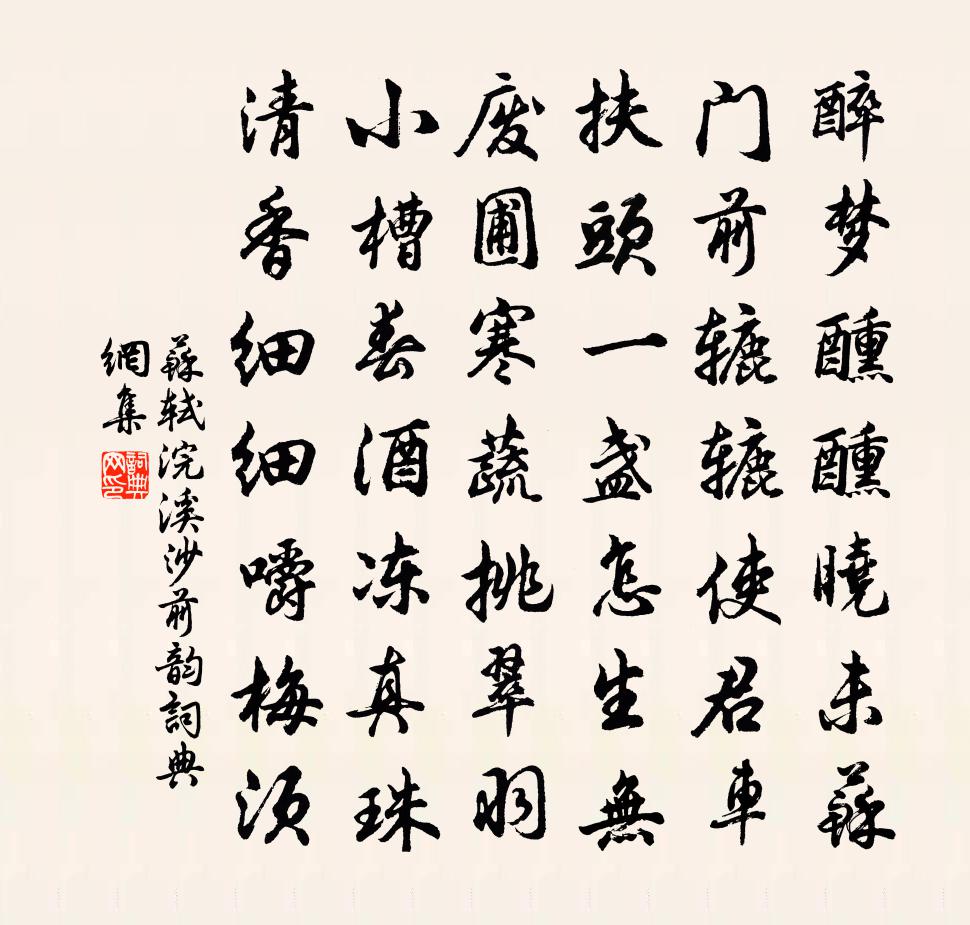 醉梦醺醺曉未蘇
门前辘辘使君車
扶頭一盏怎生無
废圃寒蔬挑翠羽
小槽春酒冻真珠
清香细细嚼梅须
蘇轼浣溪沙前韵詞典
網集
詞典
网印